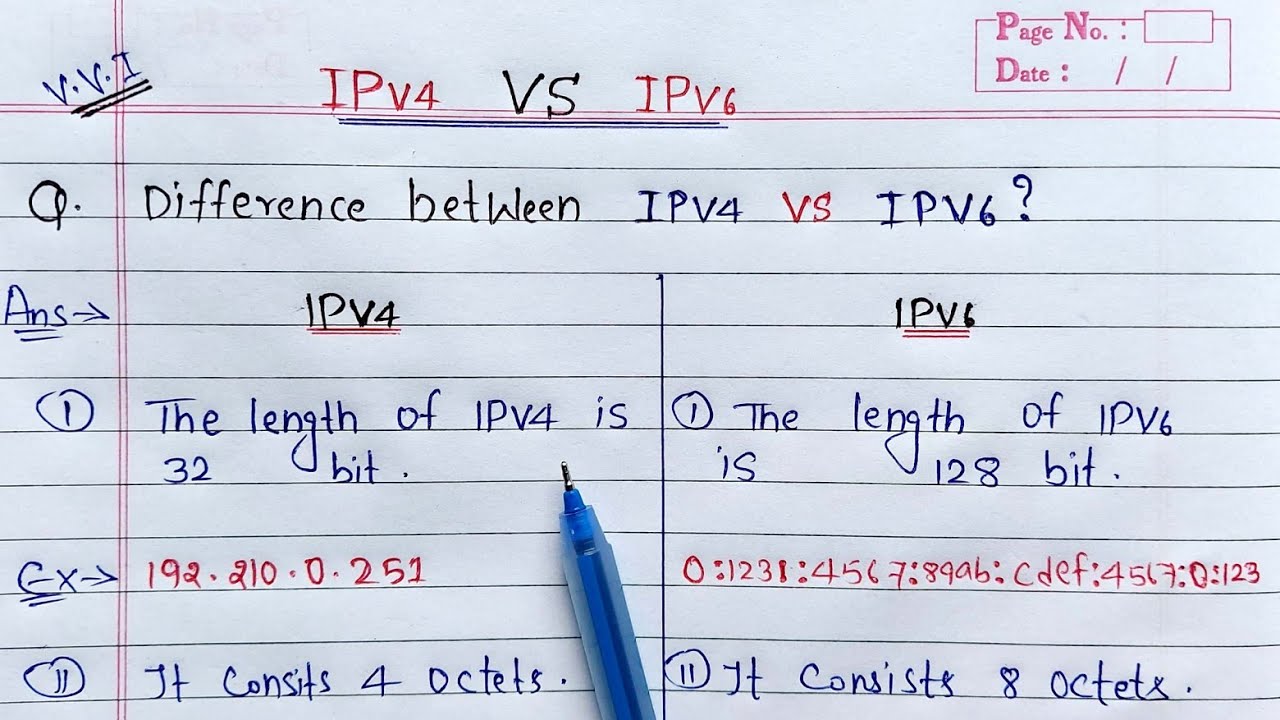 Page No. :
Date : / /
V.V.I
IPv4 VS IPv6
Q. Difference between IPV4 VS IPV6?
Ans→ IPV4 IPV6
① The length of IPV4 is ① The length of IPV6
32 bit. is 128 bit.
Ex→ 192.210.0.251 0:1231:4567:89ab:cdef:4567:0:123
⑪ It Consits 4 octets. ⑪ It Consists 8 octets.